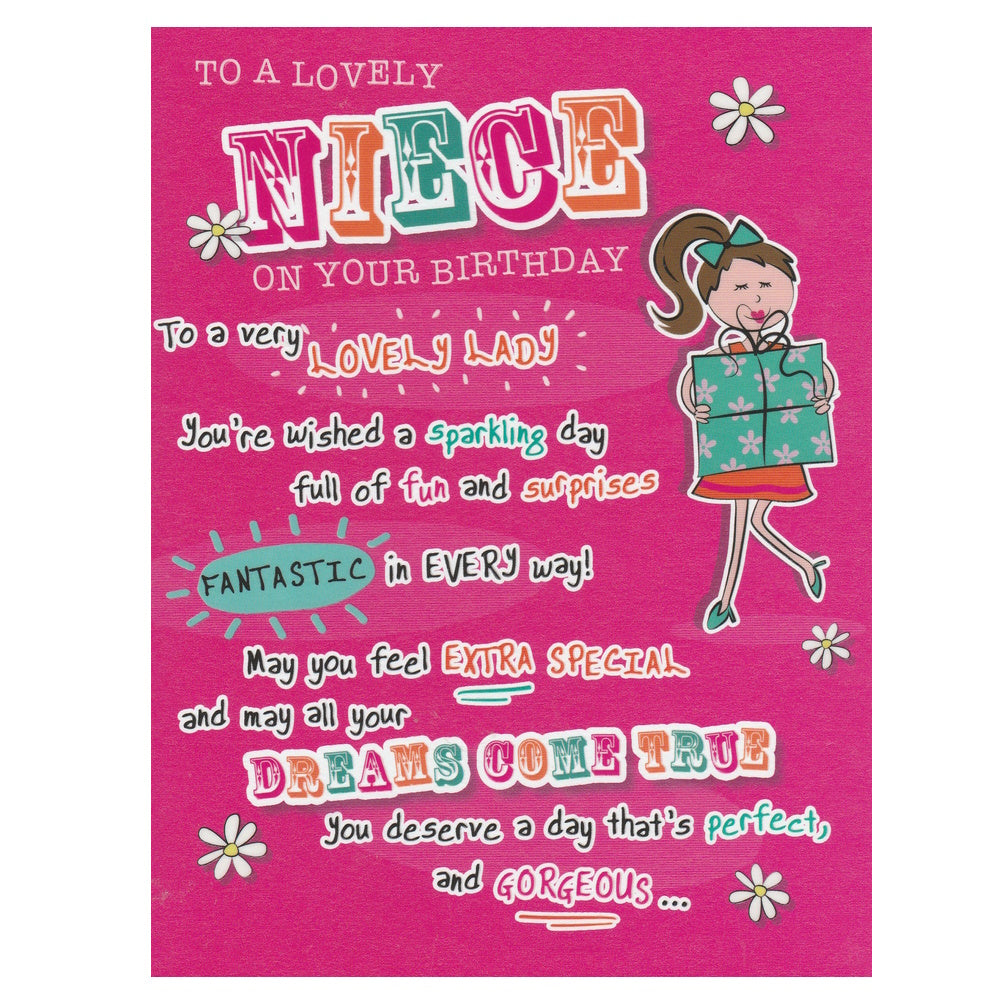 TO A LOVELY
NIECE
ON YOUR BIRTHDAY
To a very LOVELY LADY
You're wished a sparkling day
full of fun and surprises
FANTASTIC in EVERY way!
May you feel EXTRA SPECIAL
and may all your
DREAMS COME TRUE
you deserve a day that's perfect,
and GORGEOUS...